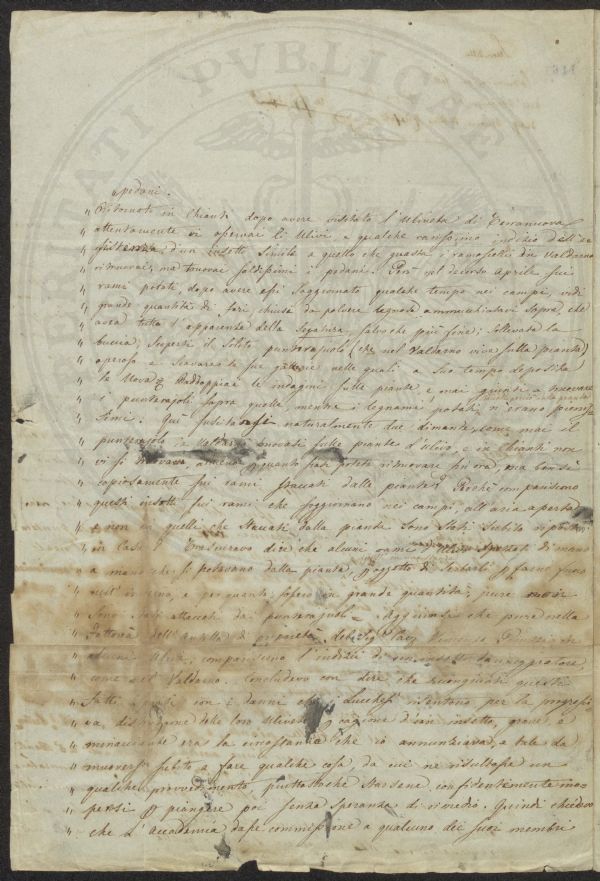 pedani.
" Ritornato in Chianti dopo avere visitato l'Uliveta di Terranuova
" attentamente vi osservai li Ulivi e qualche rarissimo indizio dell'e
" sistenza d'un insetto simile a quello che guasta i ramoscelli din Valdarno
" ritrovai, ma trovai saldissimi i pedani. Però nel decorso aprile sui
" rami potati, dopo avere essi soggiornato qualche tempo nei campi, vidi
" grande quantità di fori chiusi da polvere legnosa ammucchiatavi sopra che
" avea tutta l'apparenza della segatura, salvoche più fine; sollevata la
" buccia, scopersi il solito punteruolo (che nel Valdarno vive sulla pianta)
" operoso a scavare le sue gallerie nelle quali a suo tempo deposita
" le Uova. Raddoppiai le indagini sulle piante e mai giunsi a trovare
" i punteruoli sopra quelle, mentre i legnami potati, n'erano pienis
" simi. Qui naturalmente due dimande, come mai il
" punteruolo in Valdarno trovasi sulle piante d'Ulivo, e in Chianti non
" vi si trovava almeno quanto fin'ora, ma bensì
" copiosamente sui rami staccati dalle piante? Perchè compariscono
" questi insetti sui rami che soggiornano nei campi, all'aria aperta
" e non in quelli che staccati dalla pianta sono stati subito riposti
" in casa? Trascuravo dire che alcuni rami d'Ulivo di mano
" a mano che si potavano dalla pianta, oggetto di serbarli p farne fuoco
" nell'inverno, e per quanti fossero in grande quantità, pure non
" sono stati attaccati da punteruoli. Aggiunsi che pure nella
" Fattoria dell'Antella di proprietà del Sig. Cav.
" alcuni Ulivi, comparivano l'indizii di un insetto danneggiatore
" come nel Valdarno. Concludevo con dire, che ricongiunti questi
" fatti a quelli con i danni che i Lucchesi risentono per la progressi
" va distruzione delle loro Ulivete p cagione d'un insetto, grave, e
" minacciante era la circostanza che io annunziava, e tale da
" muoversi subito a fare qualche cosa, da cui ne risultasse un
" qualche provvedimento, piuttostoche starsene confidentemente ino
" perosi p piangere poi senza speranza di rimedio. Quindi chiedevo
" che L'Accademia dasse commissione a qualcuno dei suoi membri